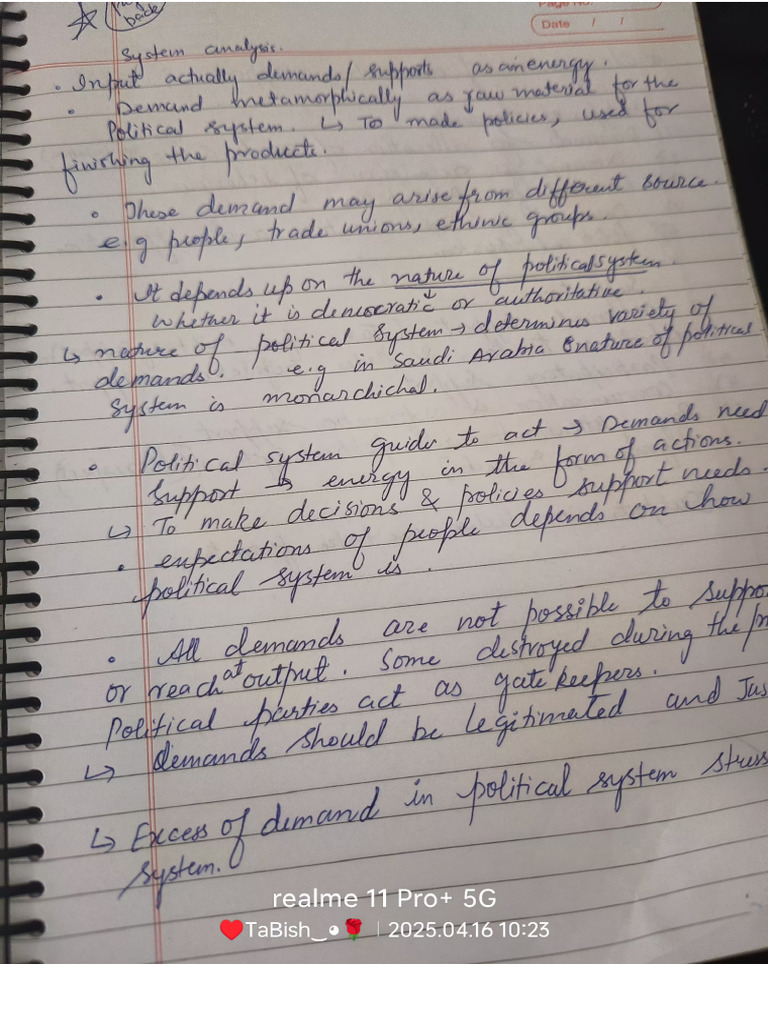 back
Page No.
Date / /
System analysis.
• Input actually demands/ supports as an energy.
• Demand metamorphically as raw material for the
Political system. ↳ To made policies, used for
finishing the products.
• These demand may arise from different source.
e.g people, trade unions, ethinic groups.
• It depends up on the nature of political system
whether it is democratic or authoritative.
↳ nature of political system → determines variety of
demands. e.g in Saudi Arabia nature of political
system is monarchichal.
• Political system guides to act → Demands need
support → energy in the form of actions.
↳ To make decisions & policies support needs.
• expectations of people depends on how
political system is.
• All demands are not possible to suppo
or reach at output. Some destroyed during the
Political parties act as gate keepers.
↳ demands should be legitimated and Jus
↳ Excess of demand in political system stress
system.
realme 11 Pro+ 5G
❤️TaBish‿◕🌹 | 2025.04.16 10:23